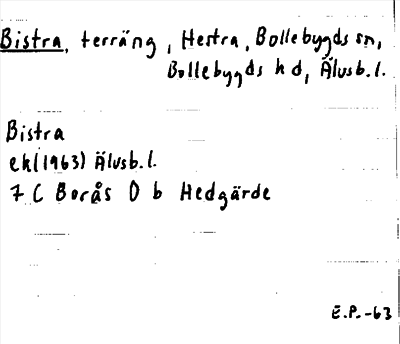 Bistra, terräng, Hestra, Bollebygds sn,
Bollebygds hd, Älvsb. l.
Bistra
ek (1963) Älvsb. l.
7 C Borås 0 b Hedgärde
E.P. -63